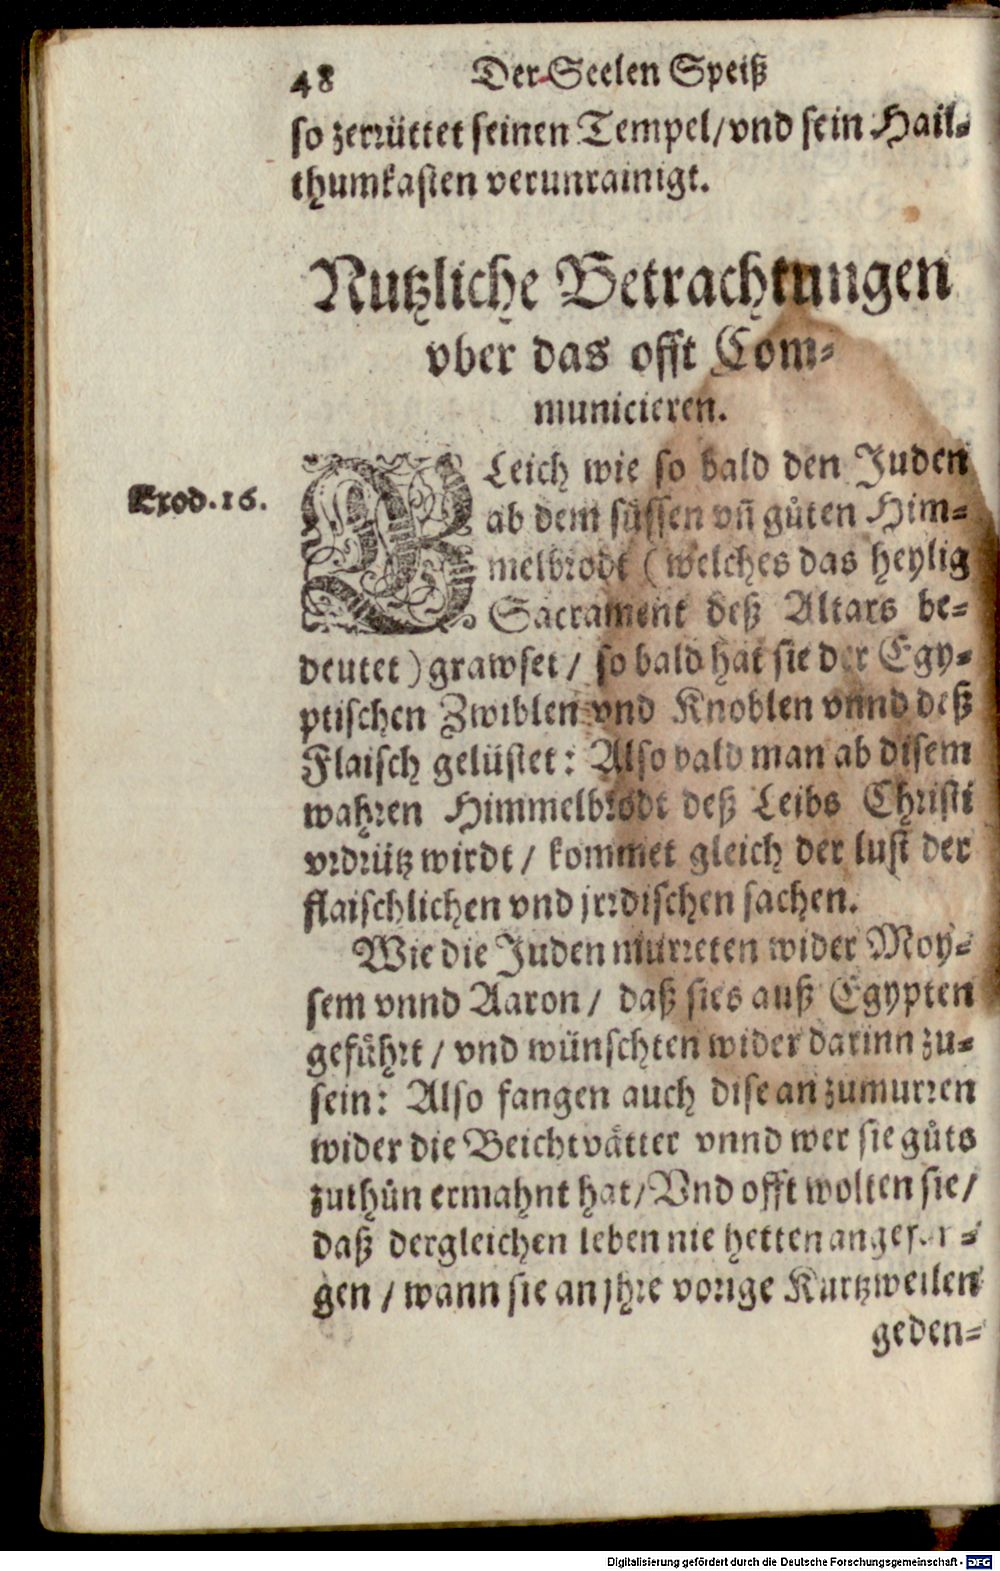 48 Der Seelen Speiß
so zerrüttet seinen Tempel/vnd sein Hail-
thumkasten verunrainigt.
Nutzliche Betrachtungen
vber das offt Com-
municieren.
Exod.16.
GLeich wie so bald den Juden
ab dem süssen vñ gůten Him-
melbrodt (welches das heylig
Sacrament deß Altars be-
deutet) grawset/ so bald hat sie der Egy-
ptischen Zwiblen vnd Knoblen vnnd deß
Flaisch gelüstet: Also bald man ab disem
wahren Himmelbrodt deß Leibs Christi
vrdrütz wirdt/ kommet gleich der lust der
flaischlichen vnd jrrdischen sachen.
Wie die Juden murreten wider Moy-
sem vnnd Aaron/ daß sies auß Egypten
geführt/ vnd wünschten wider darinn zu-
sein: Also fangen auch dise an zumurren
wider die Beichtvätter vnnd wer sie gůts
zuthůn ermahnt hat/Vnd offt wolten sie/
daß dergleichen leben nie hetten
gen/ wann sie an jhre vorige Kurtzweilen
geden-
Digitalisierung gefördert durch die Deutsche Forschungsgemeinschaft - DFG